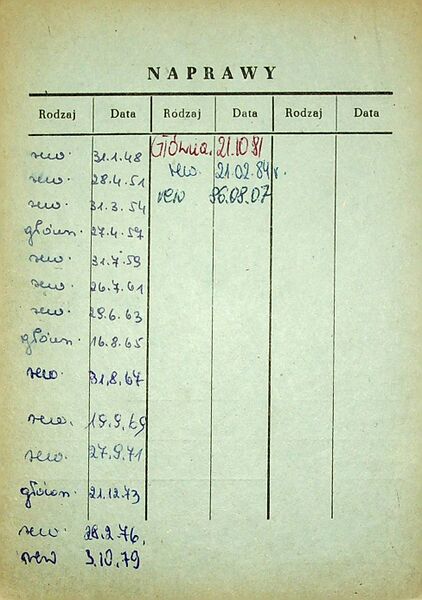 NAPRAWY
Rodzaj Data Rodzaj Data Rodzaj Data
rew. 31.1.48 Główna. 21.10.81
rew. 28.4.51 rew. 21.02.84 r.
rew. 31.3.54 rew 86.08.07
główn. 27.4.57
rew. 31.7.59
rew. 26.7.61
rew. 29.6.63
główn. 16.8.65
rew. 31.8.67
rew. 19.9.69
rew. 27.9.71
główn. 21.12.73
rew. 28.2.76.
rew 3.10.79